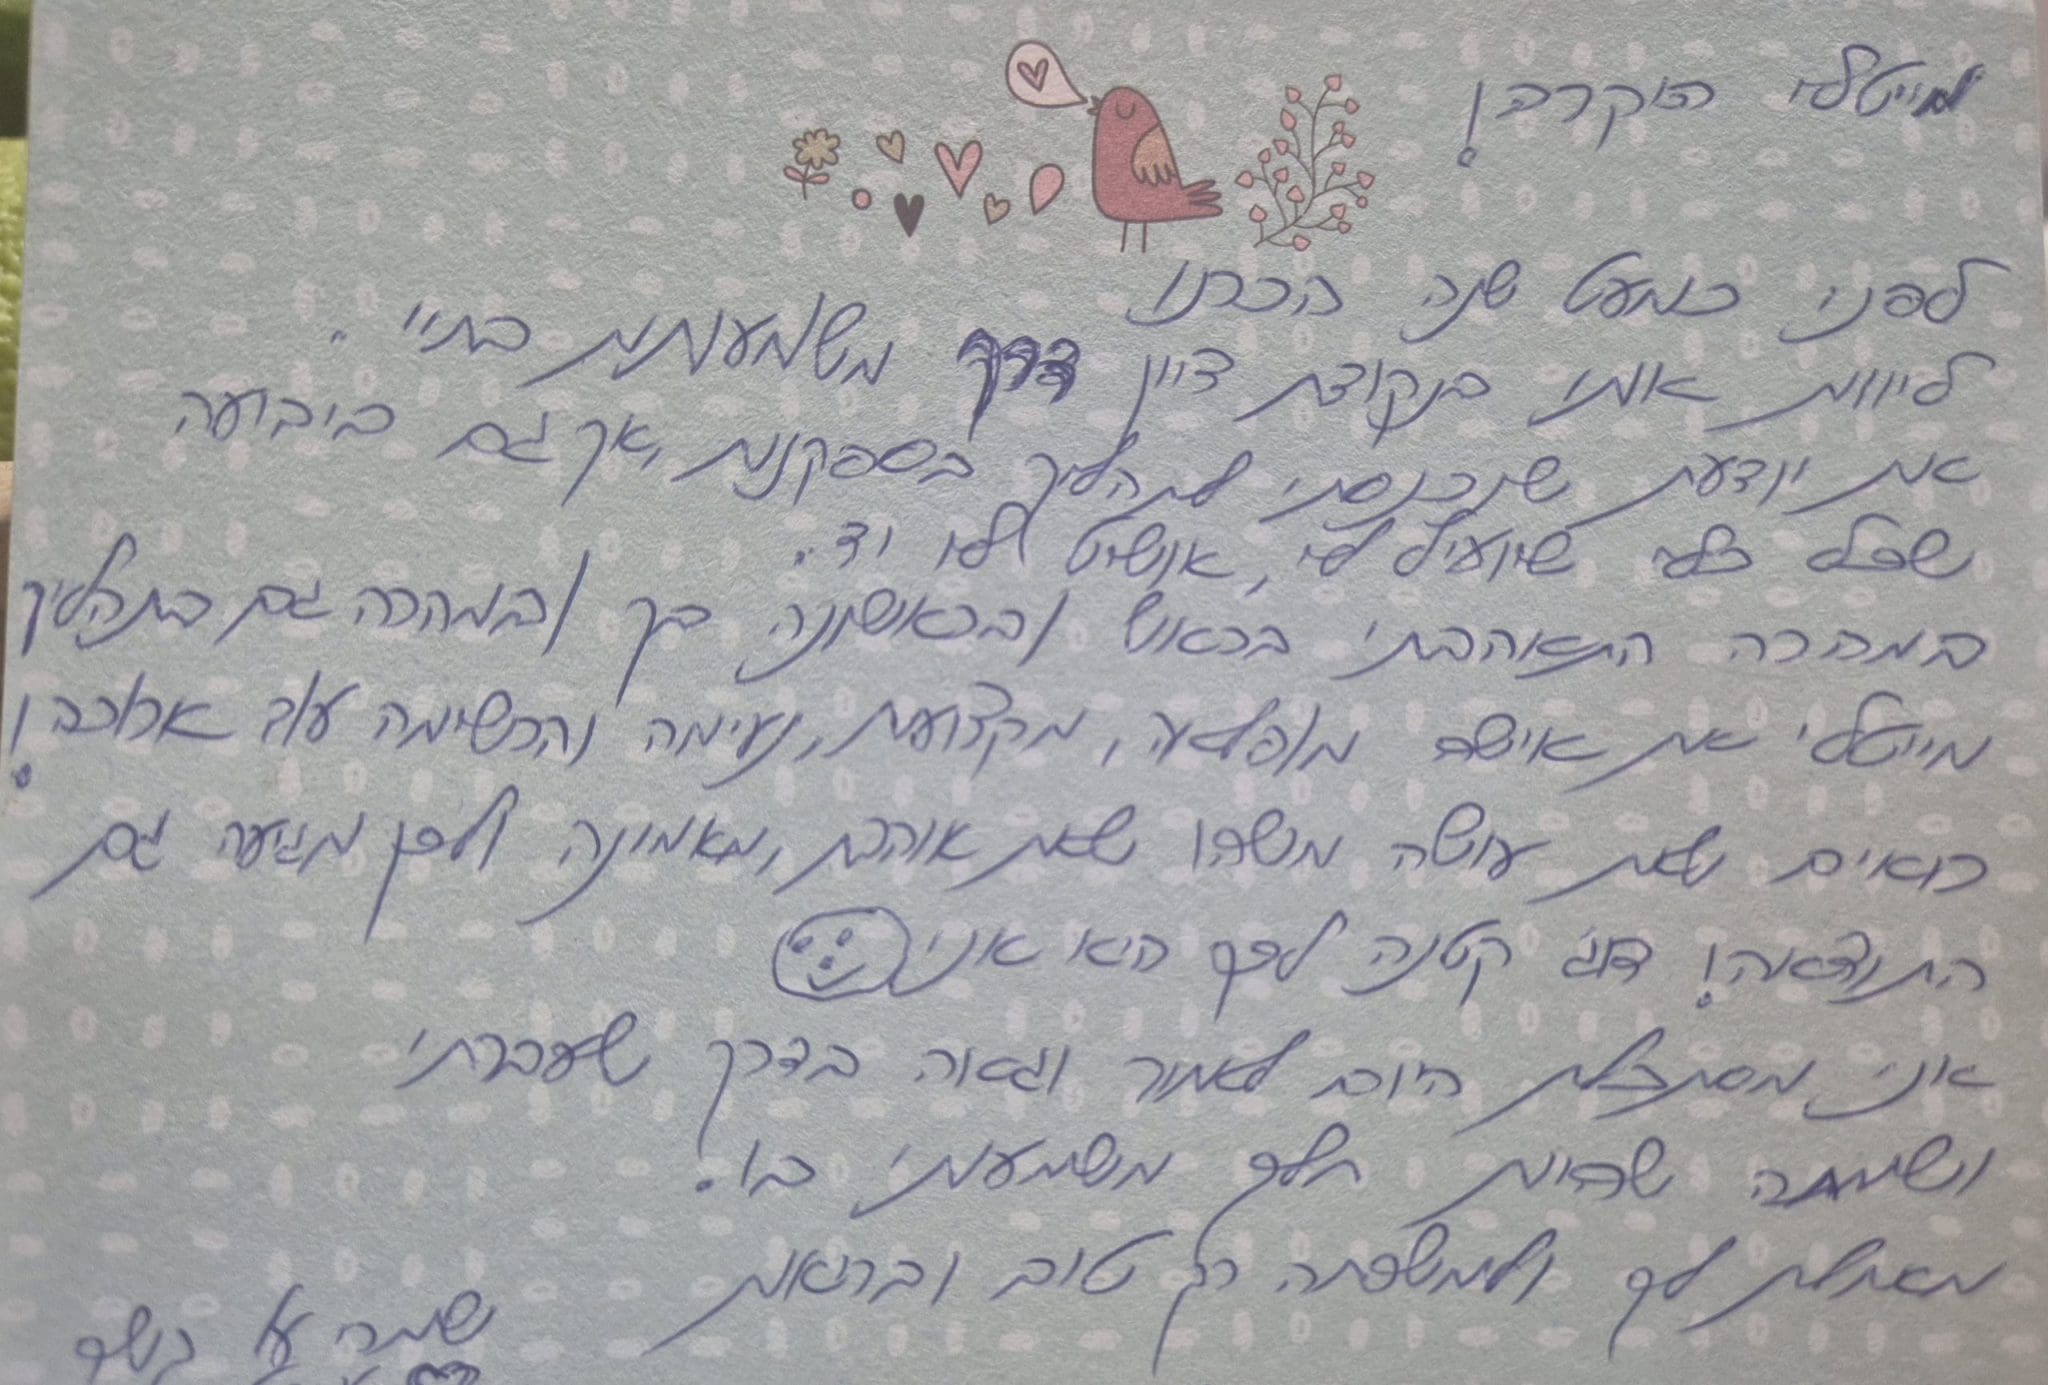 מייטלי היקרה!
לפני כמעט שנה הכרנו
ליווית אותי בנקודת ציון דרך משמעותית בחיי.
את יודעת שנכנסתי לתהליך בספקנות, אך גם בידיעה
שכל כלי שיועיל לי, אושיט לו יד.
במהרה התאהבתי בראש ובראשונה בך ובמהרה גם בתהליך
מייטלי את אישה מופלאה, מקצועית, נעימה והרשימה עוד ארוכה!
רואים שאת עושה משהו שאת אוהבת, מאמינה ולכן מגיעה גם
התוצאה! דוג' קטנה לכך היא אני
אני מסתכלת היום לאחור וגאה בדרך שעברתי
ושמחה שהיית חלק משמעותי בו.
מאחלת לך ולמשפחה רק טוב ובריאות
שמרה על קשר